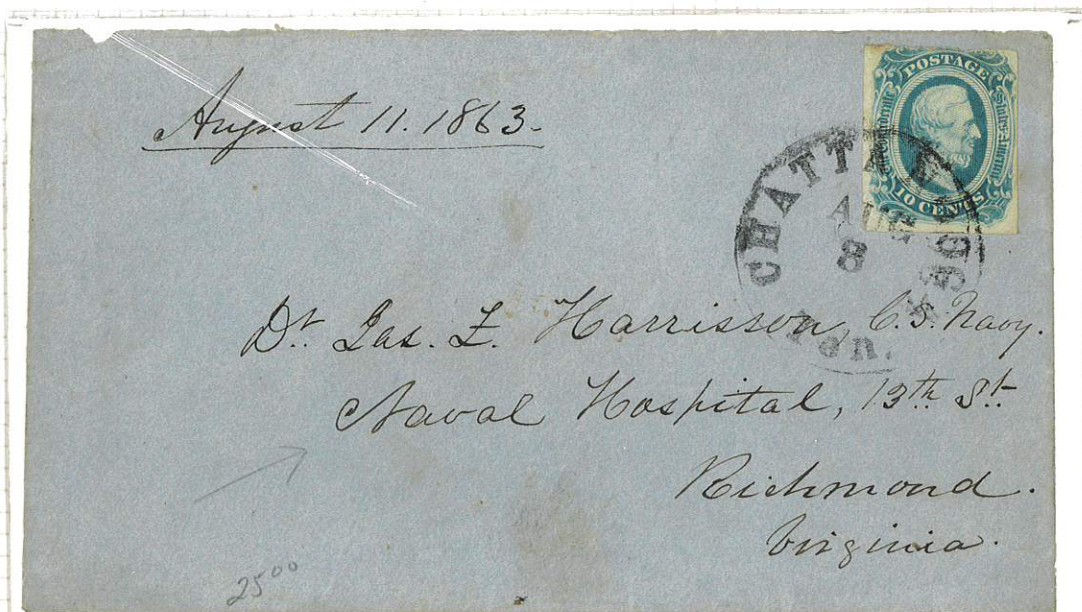 August 11. 1863.
POSTAGE
10 CENTS
CHATTANOOGA
AUG
8
Ten.
Dr. Jas. F. Harrison, C.S. Navy.
Naval Hospital, 13th St.
Richmond.
Virginia.
25 00